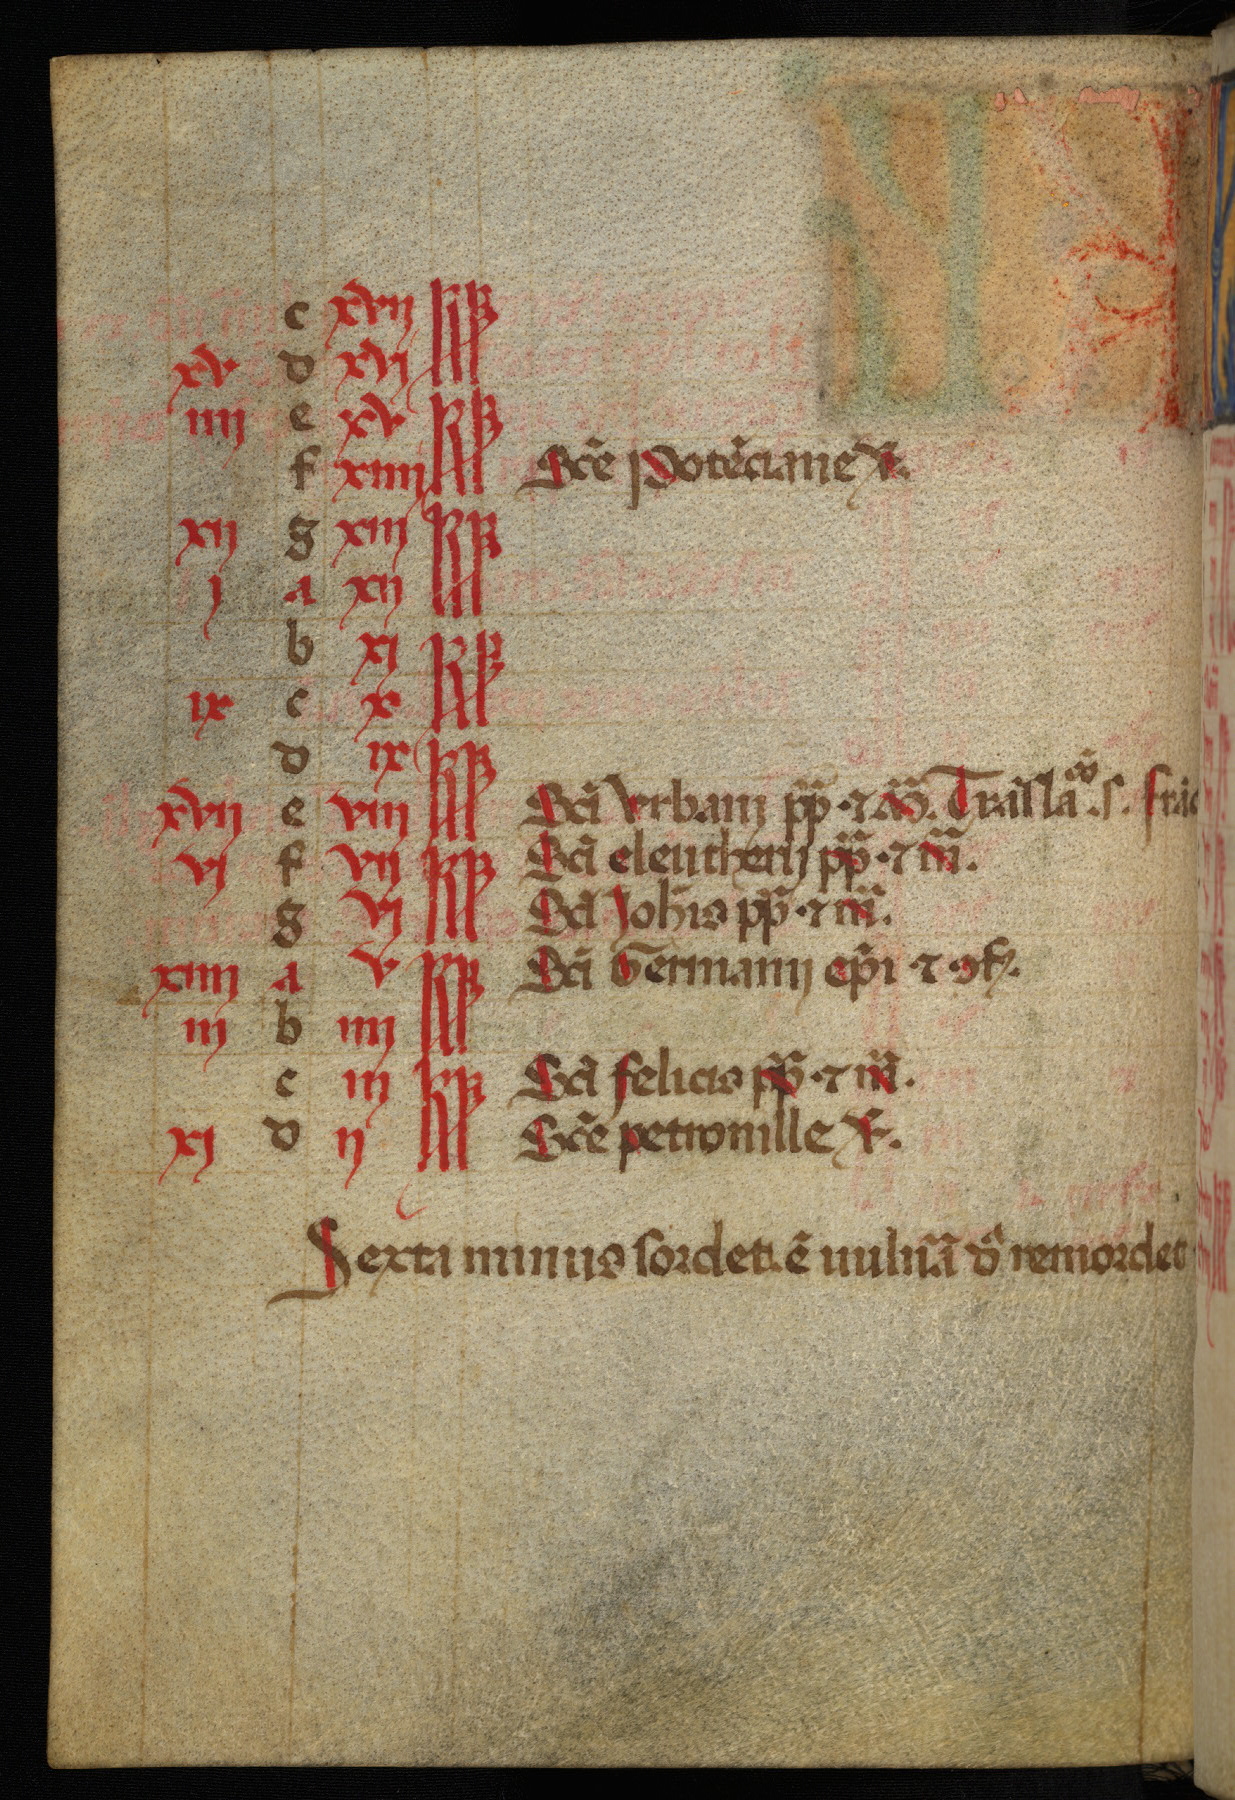 c xvii kl
xv d xvi kl
iiii e xv kl
f xiiii kl Scē Potēciane v̄.
xii g xiii kl
j a xii kl
b xi kl
ix c x kl
d ix kl
xvii e viii kl Scī Vrbanij pp̄ · ⁊ m̄. Trāsla. s. frāc
vj f vii kl Scī eleutherij pp̄ · ⁊ m̄.
g vj kl Scī Joh̄is pp̄ · ⁊ m̄.
xiiii a v kl Scī Germanij ep̄i · ⁊ ꝯf.
iii b iiii kl
c iii kl Scī felicis pp̄ · ⁊ m̄.
xj d ij kl Scē petronille v̄.
Sexti minus sordet. ē uulnā d̄ remordet